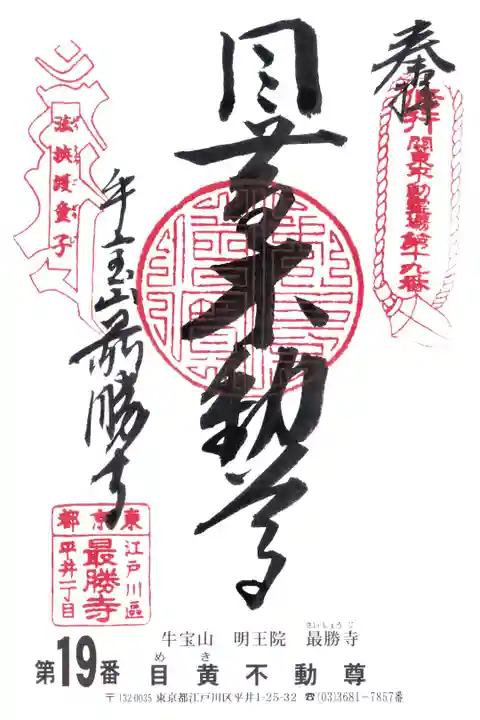 奉拝
関東不動霊場第十九番
目黄不動尊
法挾護童子
牛宝山最勝寺
東京都
江戸川區
最勝寺
平井一丁目
牛宝山 明王院 最勝寺
さいしょうじ
めき
第19番 目黄不動尊
〒132-0035 東京都江戸川区平井1-25-32 ☎(03)3681-7857番